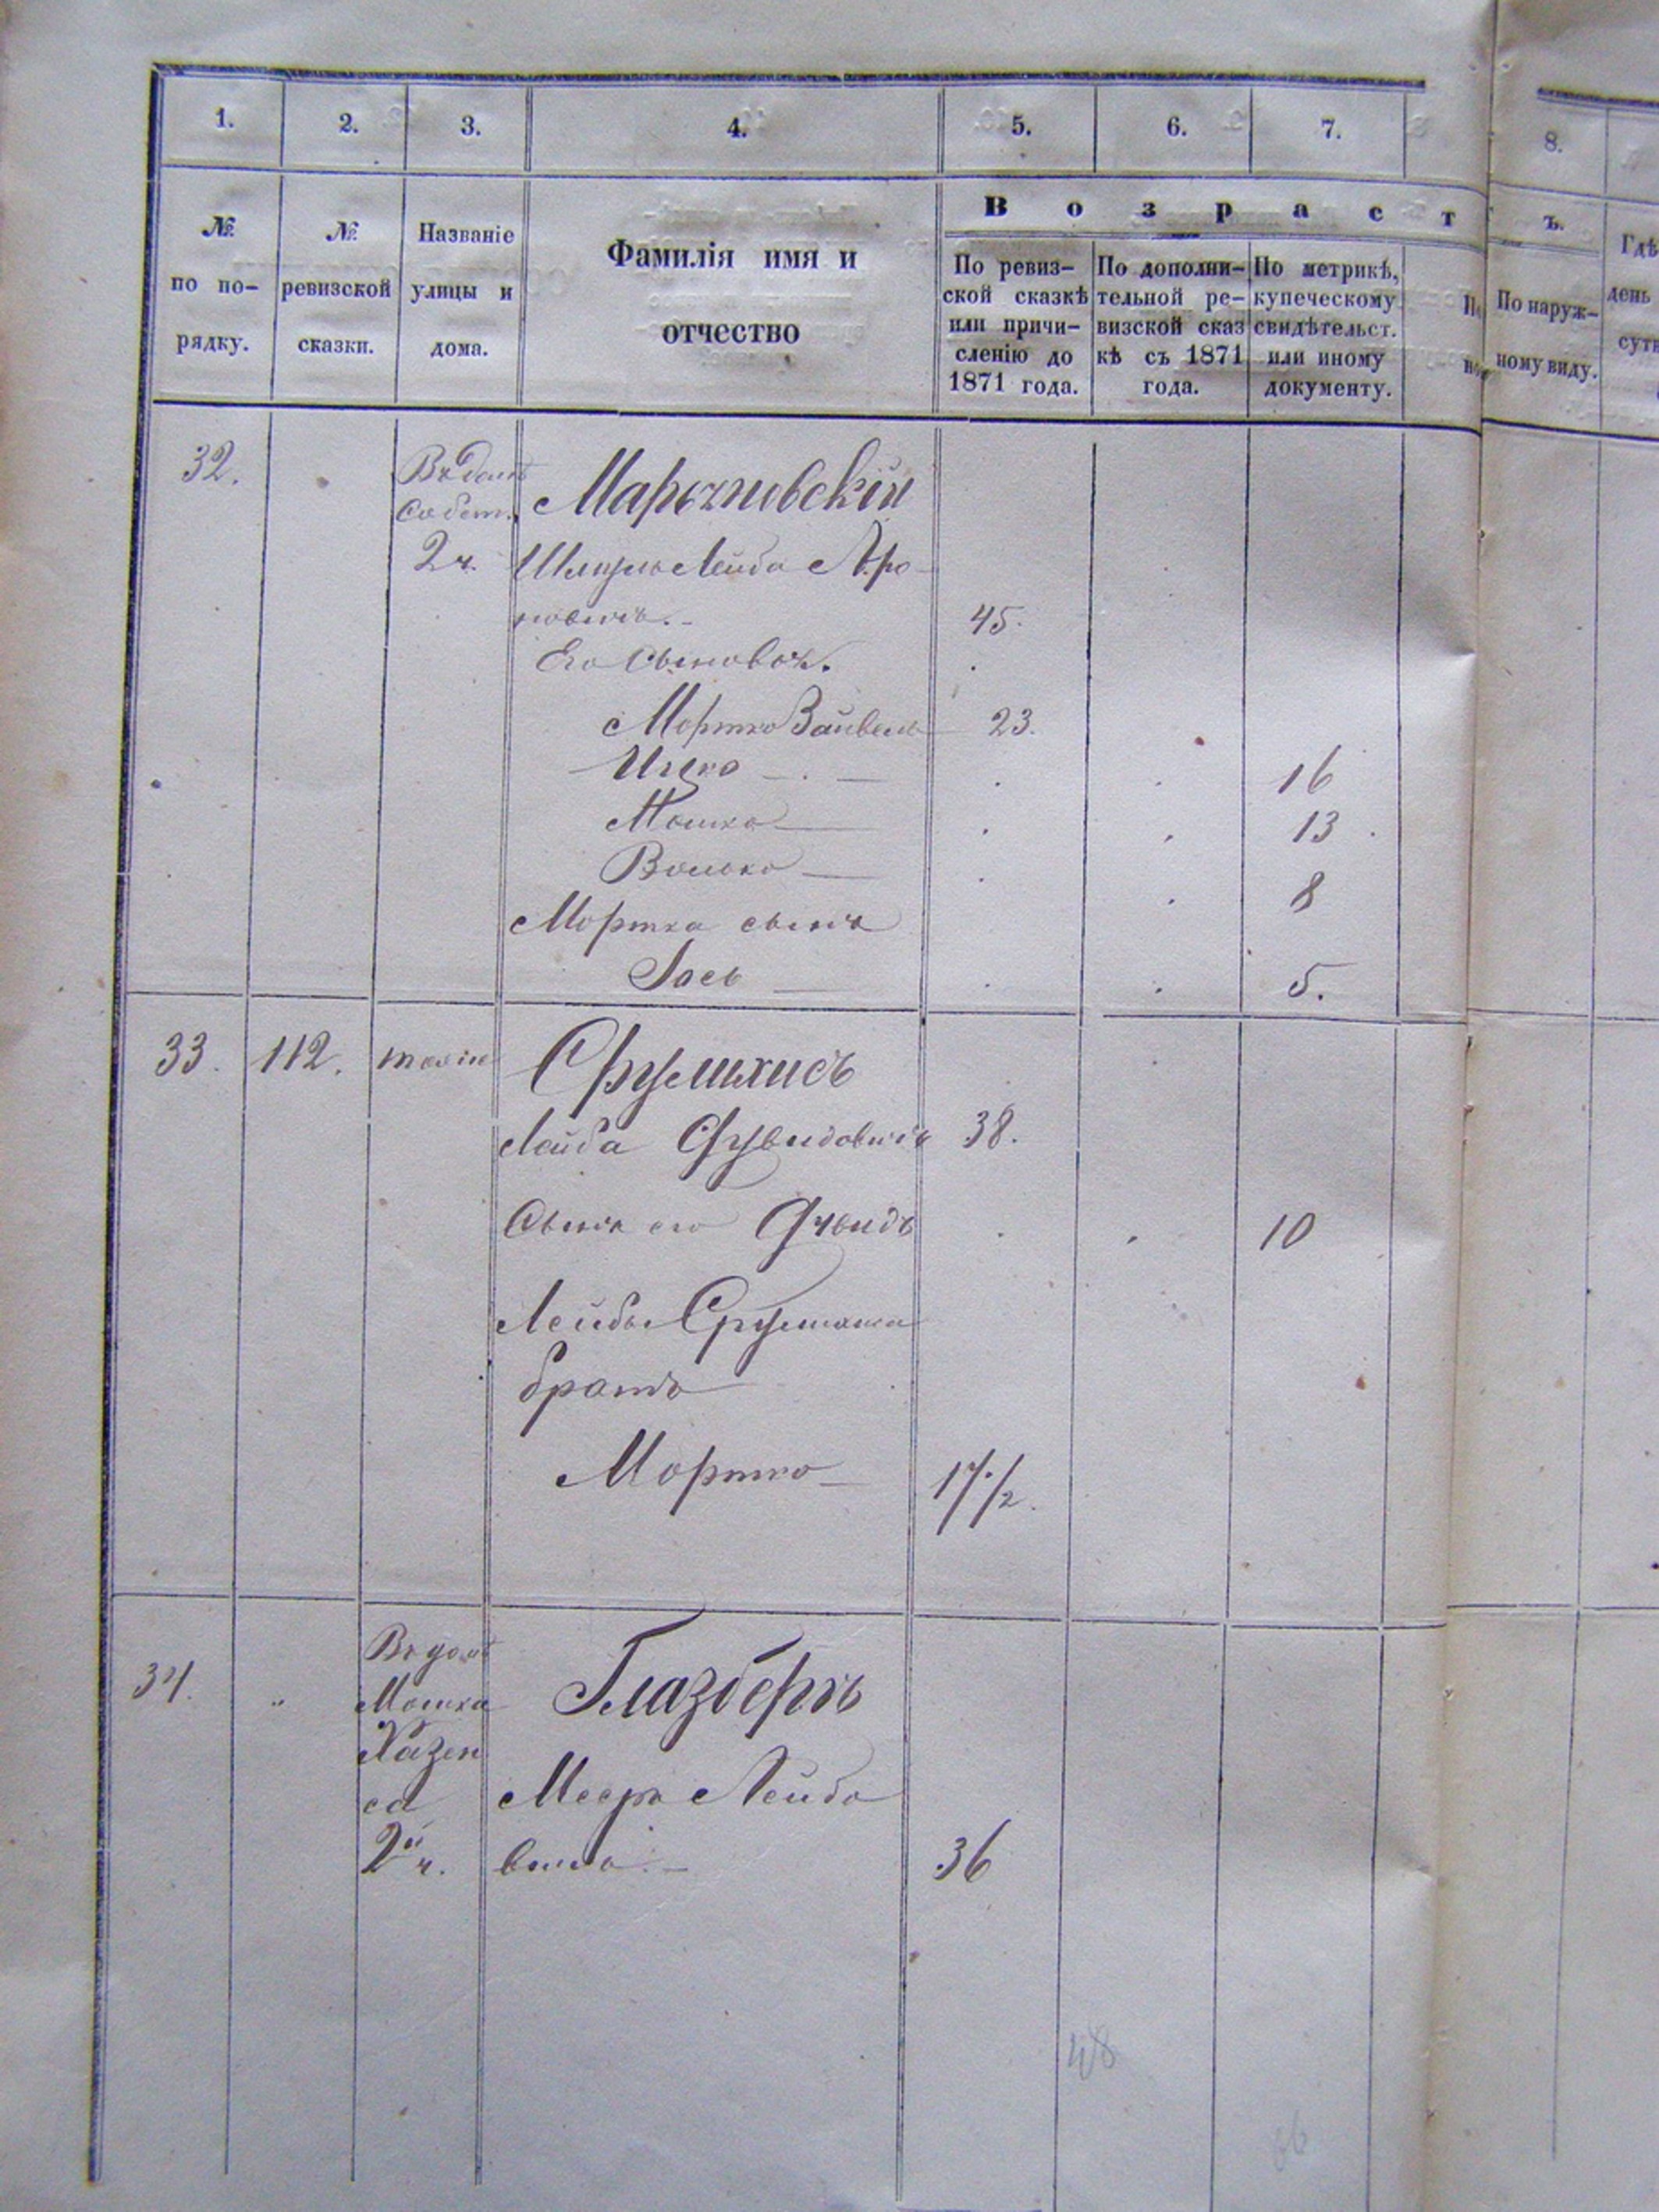 1. 2. 3. 4. 5. 6. 7. 8.
№ по по- рядку.
№ ревизской сказки.
Названіе улицы и дома.
Фамилія имя и отчество
В о з р а с т ъ.
По ревиз- ской сказкѣ или причи- сленію до 1871 года.
По дополни- тельной ре- визской сказ кѣ съ 1871 года.
По метрикѣ, купеческому свидѣтельст. или иному документу.
По наруж- ному виду.
Гдѣ
день
сутн
32.
Въ домѣ
Собств.
2 ч.
Лейба Аро
новичъ. 45.
Его Сыновья.
Мортко Зайвель 23.
Ицко 16
Мошко 13
Волько 8
Мортка сынъ
Іось 5.
33. 112. тоже
Срулихисъ
Лейба Дувидовичъ 38.
Сынъ его Дувидъ 10
Лейбы Срулихиса
братъ
Мортко 17 1/2.
34. "
Въ домѣ
Мошка
Хазен
са
2й ч.
Глазбергъ
Мееръ Лейбо
вичъ. 36
48